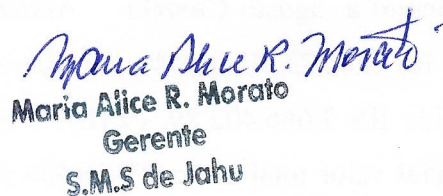 Maria Alice R. Morato
Maria Alice R. Morato
Gerente
S.M.S de Jahu